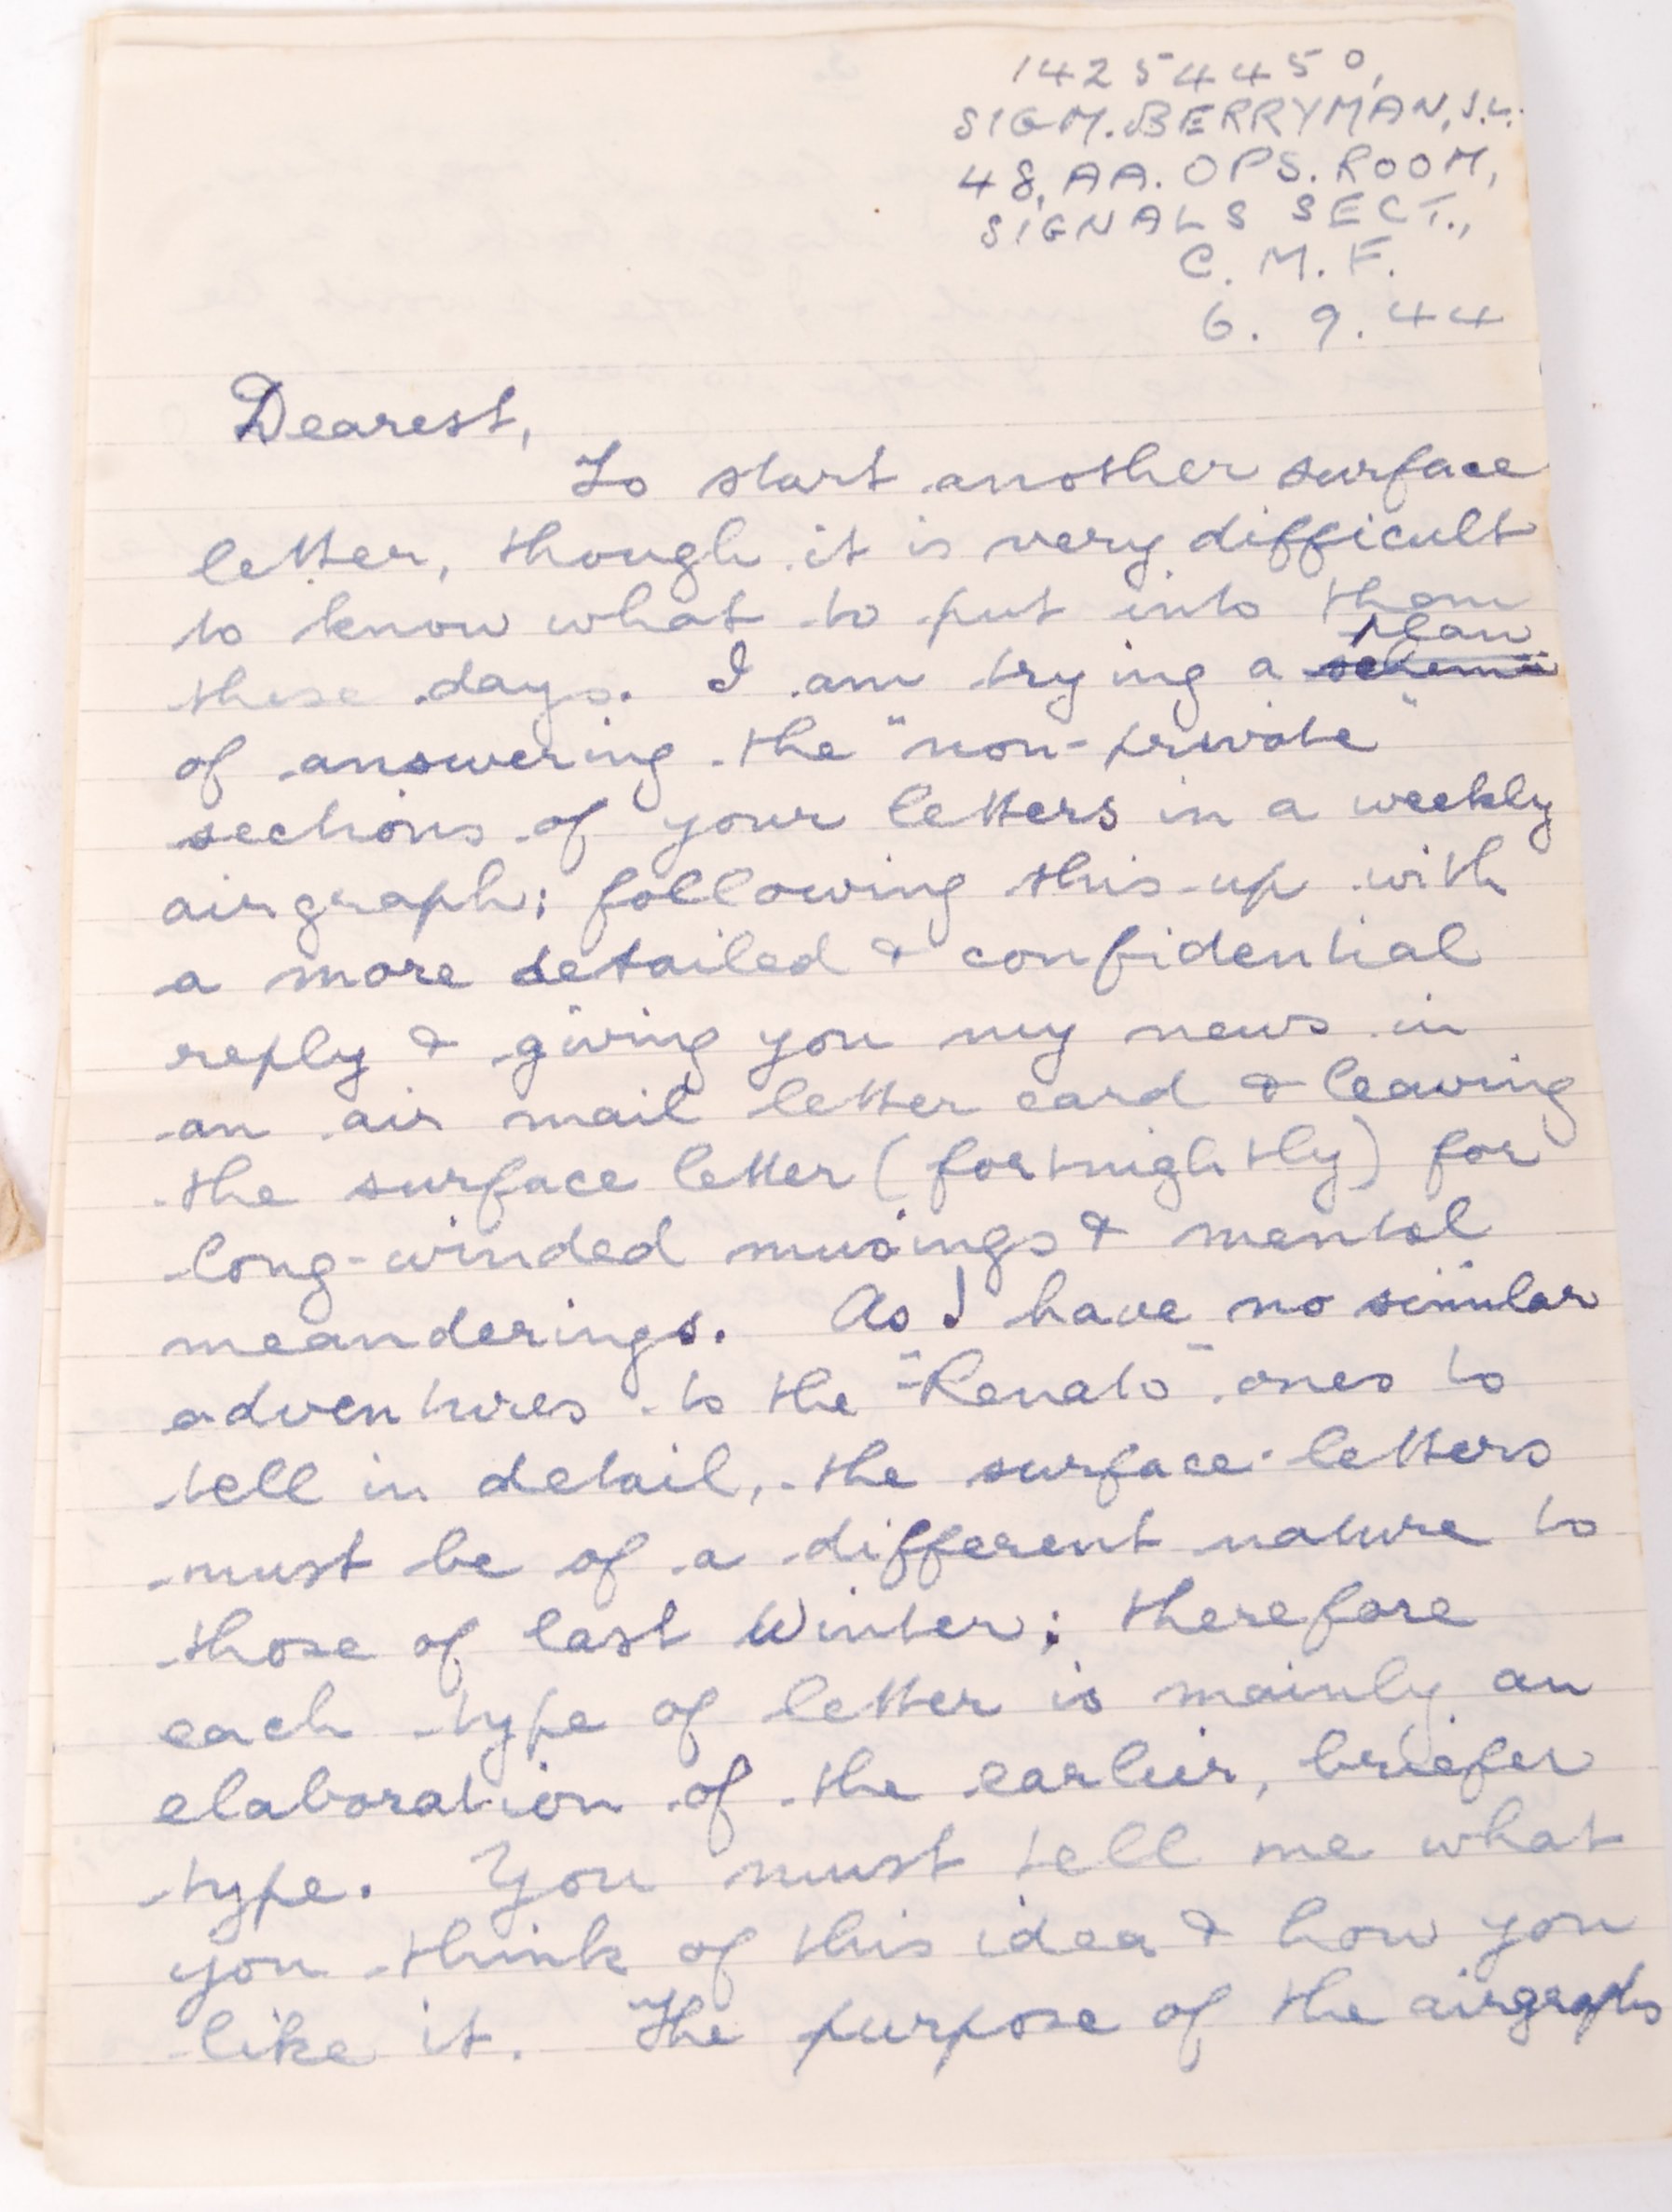 14254450,
SIGM. BERRYMAN, J.L.
48, AA. OPS. ROOM,
SIGNALS SECT.,
C. M. F.
6. 9. 44
Dearest,
To start another surface
letter, though it is very difficult
to know what to put into them
these days. I am trying a scheme plan
of answering the "non-private"
sections of your letters in a weekly
airgraph; following this up with
a more detailed & confidential
reply & giving you my news in
an air mail letter card & leaving
the surface letter (fortnightly) for
long-winded musings & mental
meanderings. As I have no similar
adventures to the "Renato" ones to
tell in detail, the surface letters
must be of a different nature to
those of last Winter; therefore
each type of letter is mainly an
elaboration of the earlier, briefer
type. You must tell me what
you think of this idea & how you
like it. The purpose of the airgraphs